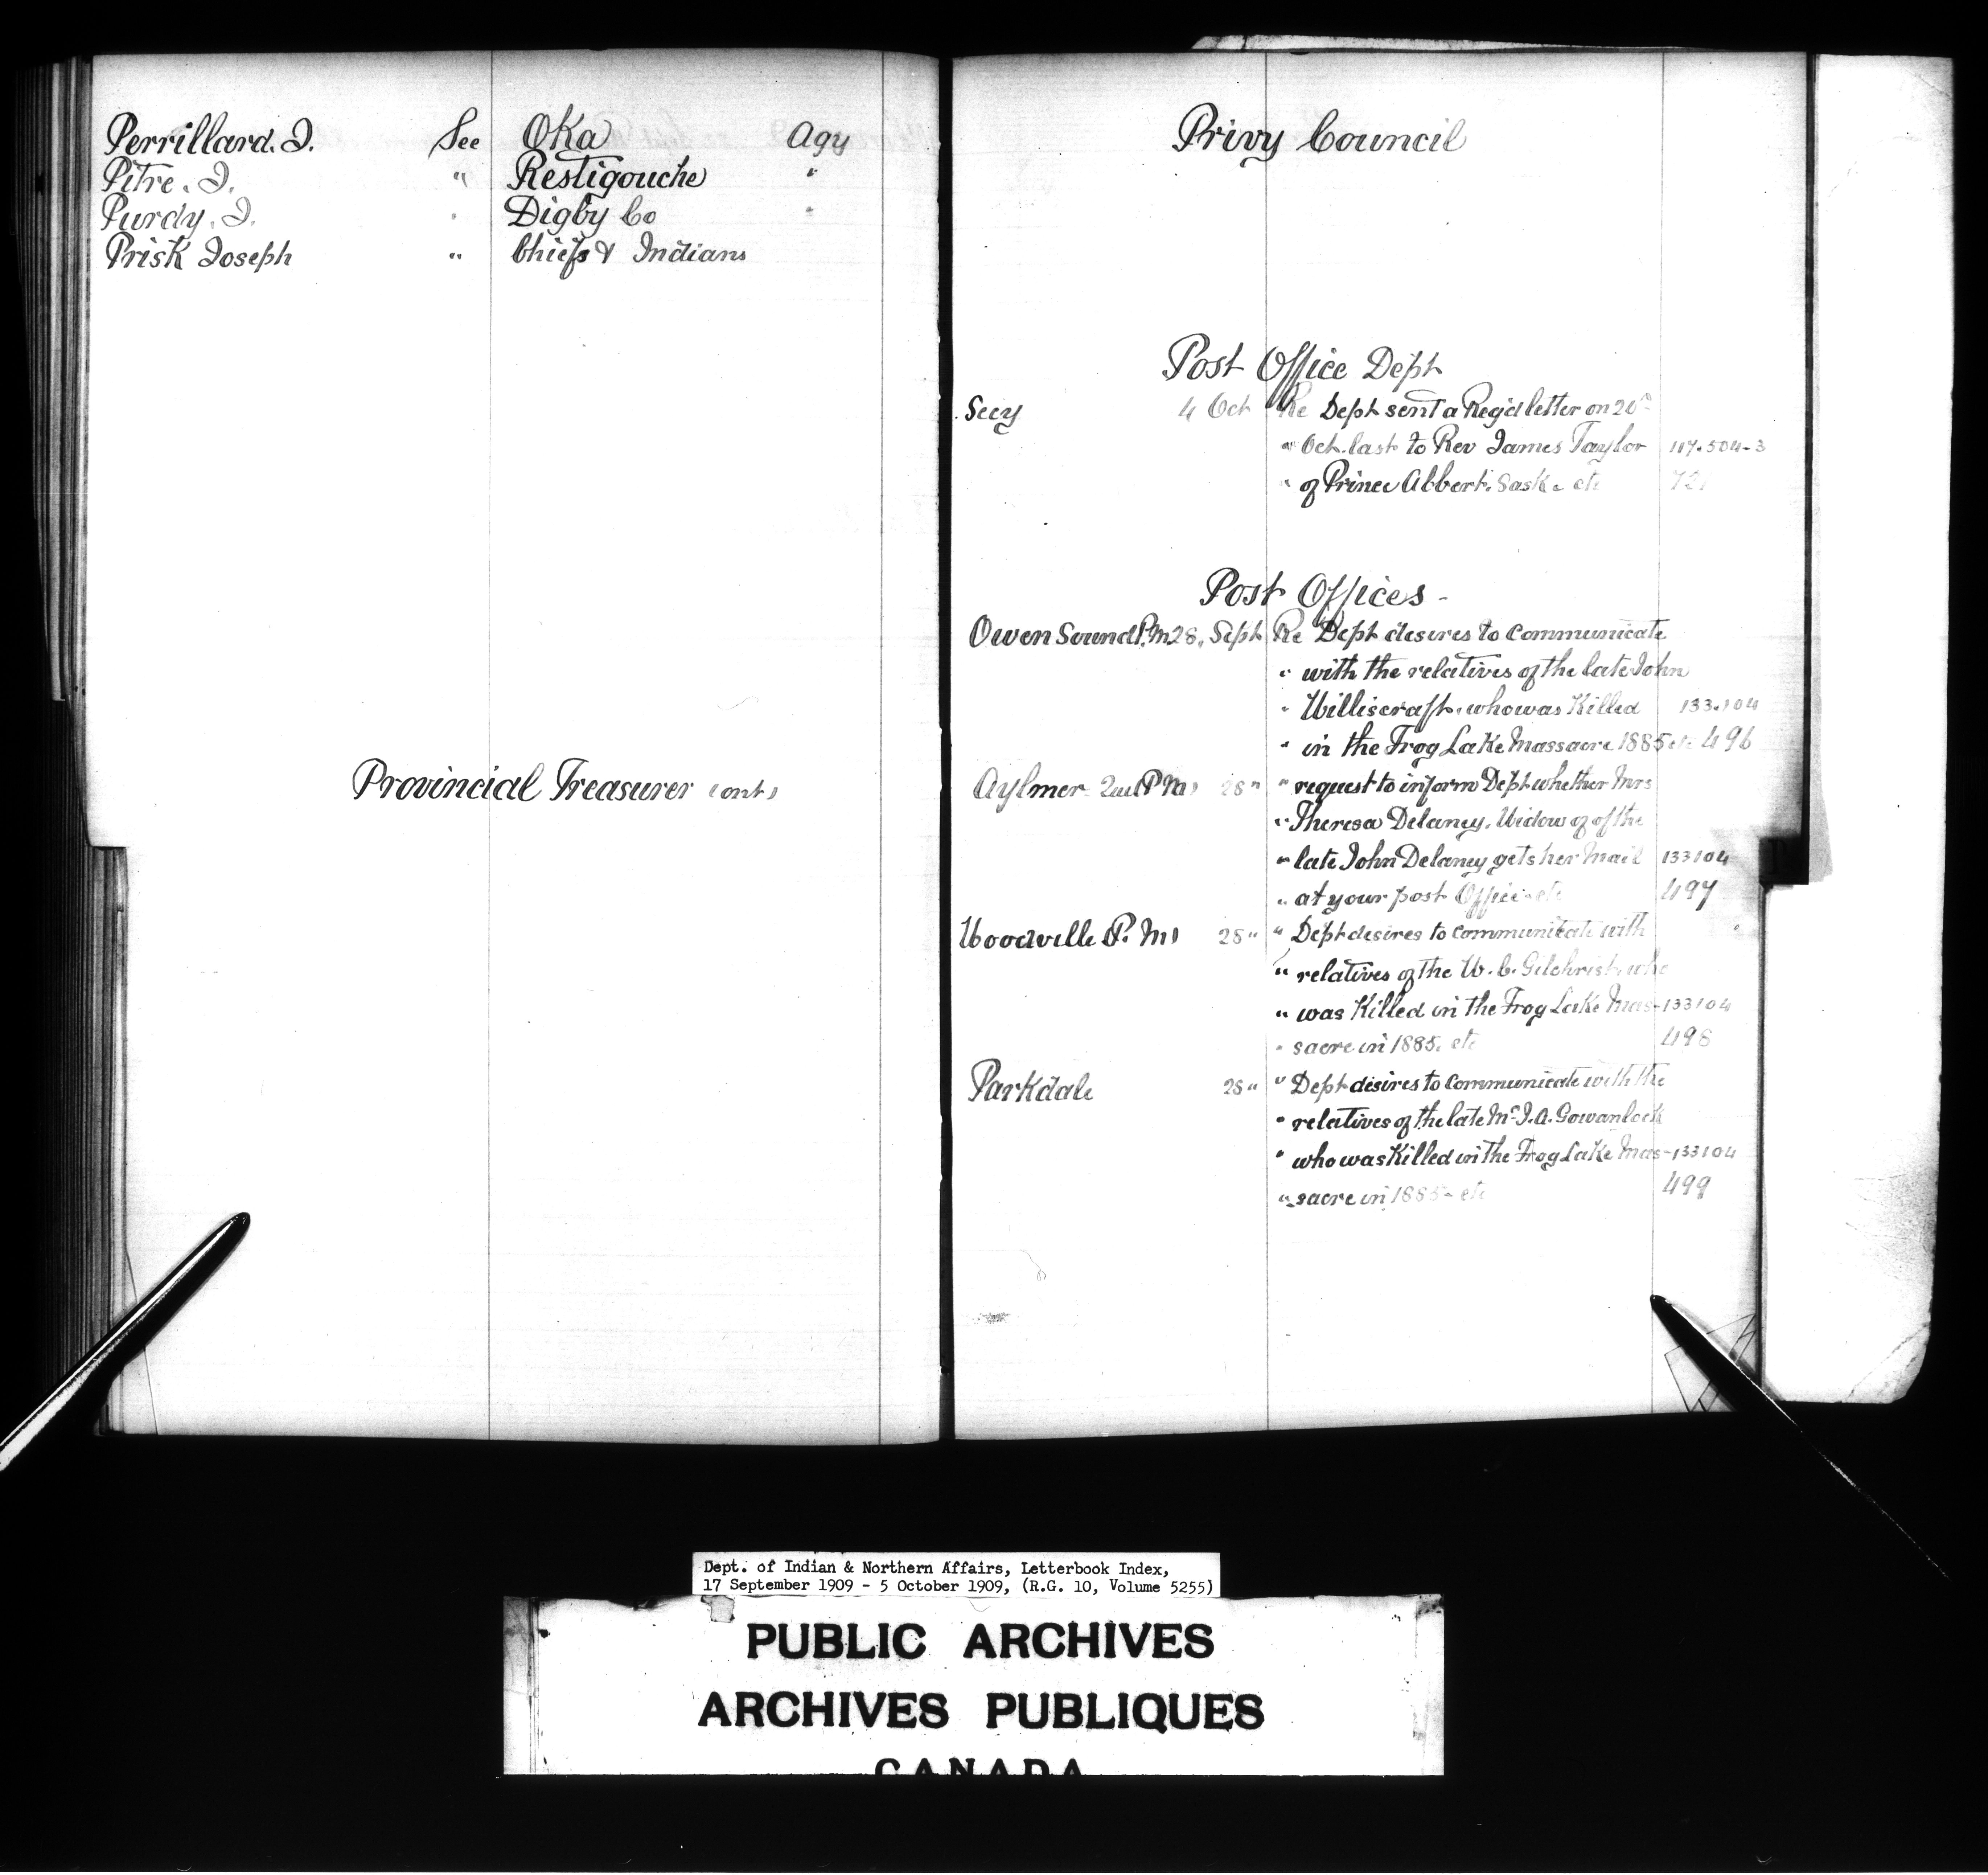 Perrillard. J. See Oka Agy
Pitre. J. " Restigouche "
Purdy. J. " Digby Co "
Prisk Joseph " Chiefs & Indians
Provincial Treasurer cont)
Privy Council
Post Office Dept
Secy 4 Oct Re Dept sent a Reg'd letter on 20th
" Oct. last to Rev James Taylor 117.504-3
" of Prince Albert. Sask. etc 721
Post Offices -
Owen Sound P.M 28. Sept Re Dept desires to communicate
" with the relatives of the late John
" Williscraft. who was Killed 133.104
" in the Frog Lake Massacre 1885 etc 496
Aylmer P M) 28 " " request to inform Dept whether Mrs
" Theresa Delaney. Widow of of the
" late John Delaney gets her Mail 133104
" at your post Office etc 497
Woodville P. M) 28 " " Dept desires to communicate with
" relatives of the W. C. Gilchrist. who
" was Killed in the Frog Lake Mas- 133104
" sacre in 1885. etc 498
Parkdale 28 " " Dept desires to communicate with the
" relatives of the late Mr J. A. Gowanlock
" who was Killed in the Frog Lake Mas- 133104
" sacre in 1885 - etc 499
Dept. of Indian & Northern Affairs, Letterbook Index,
17 September 1909 - 5 October 1909, (R.G. 10, Volume 5255)
PUBLIC ARCHIVES
ARCHIVES PUBLIQUES
CANADA